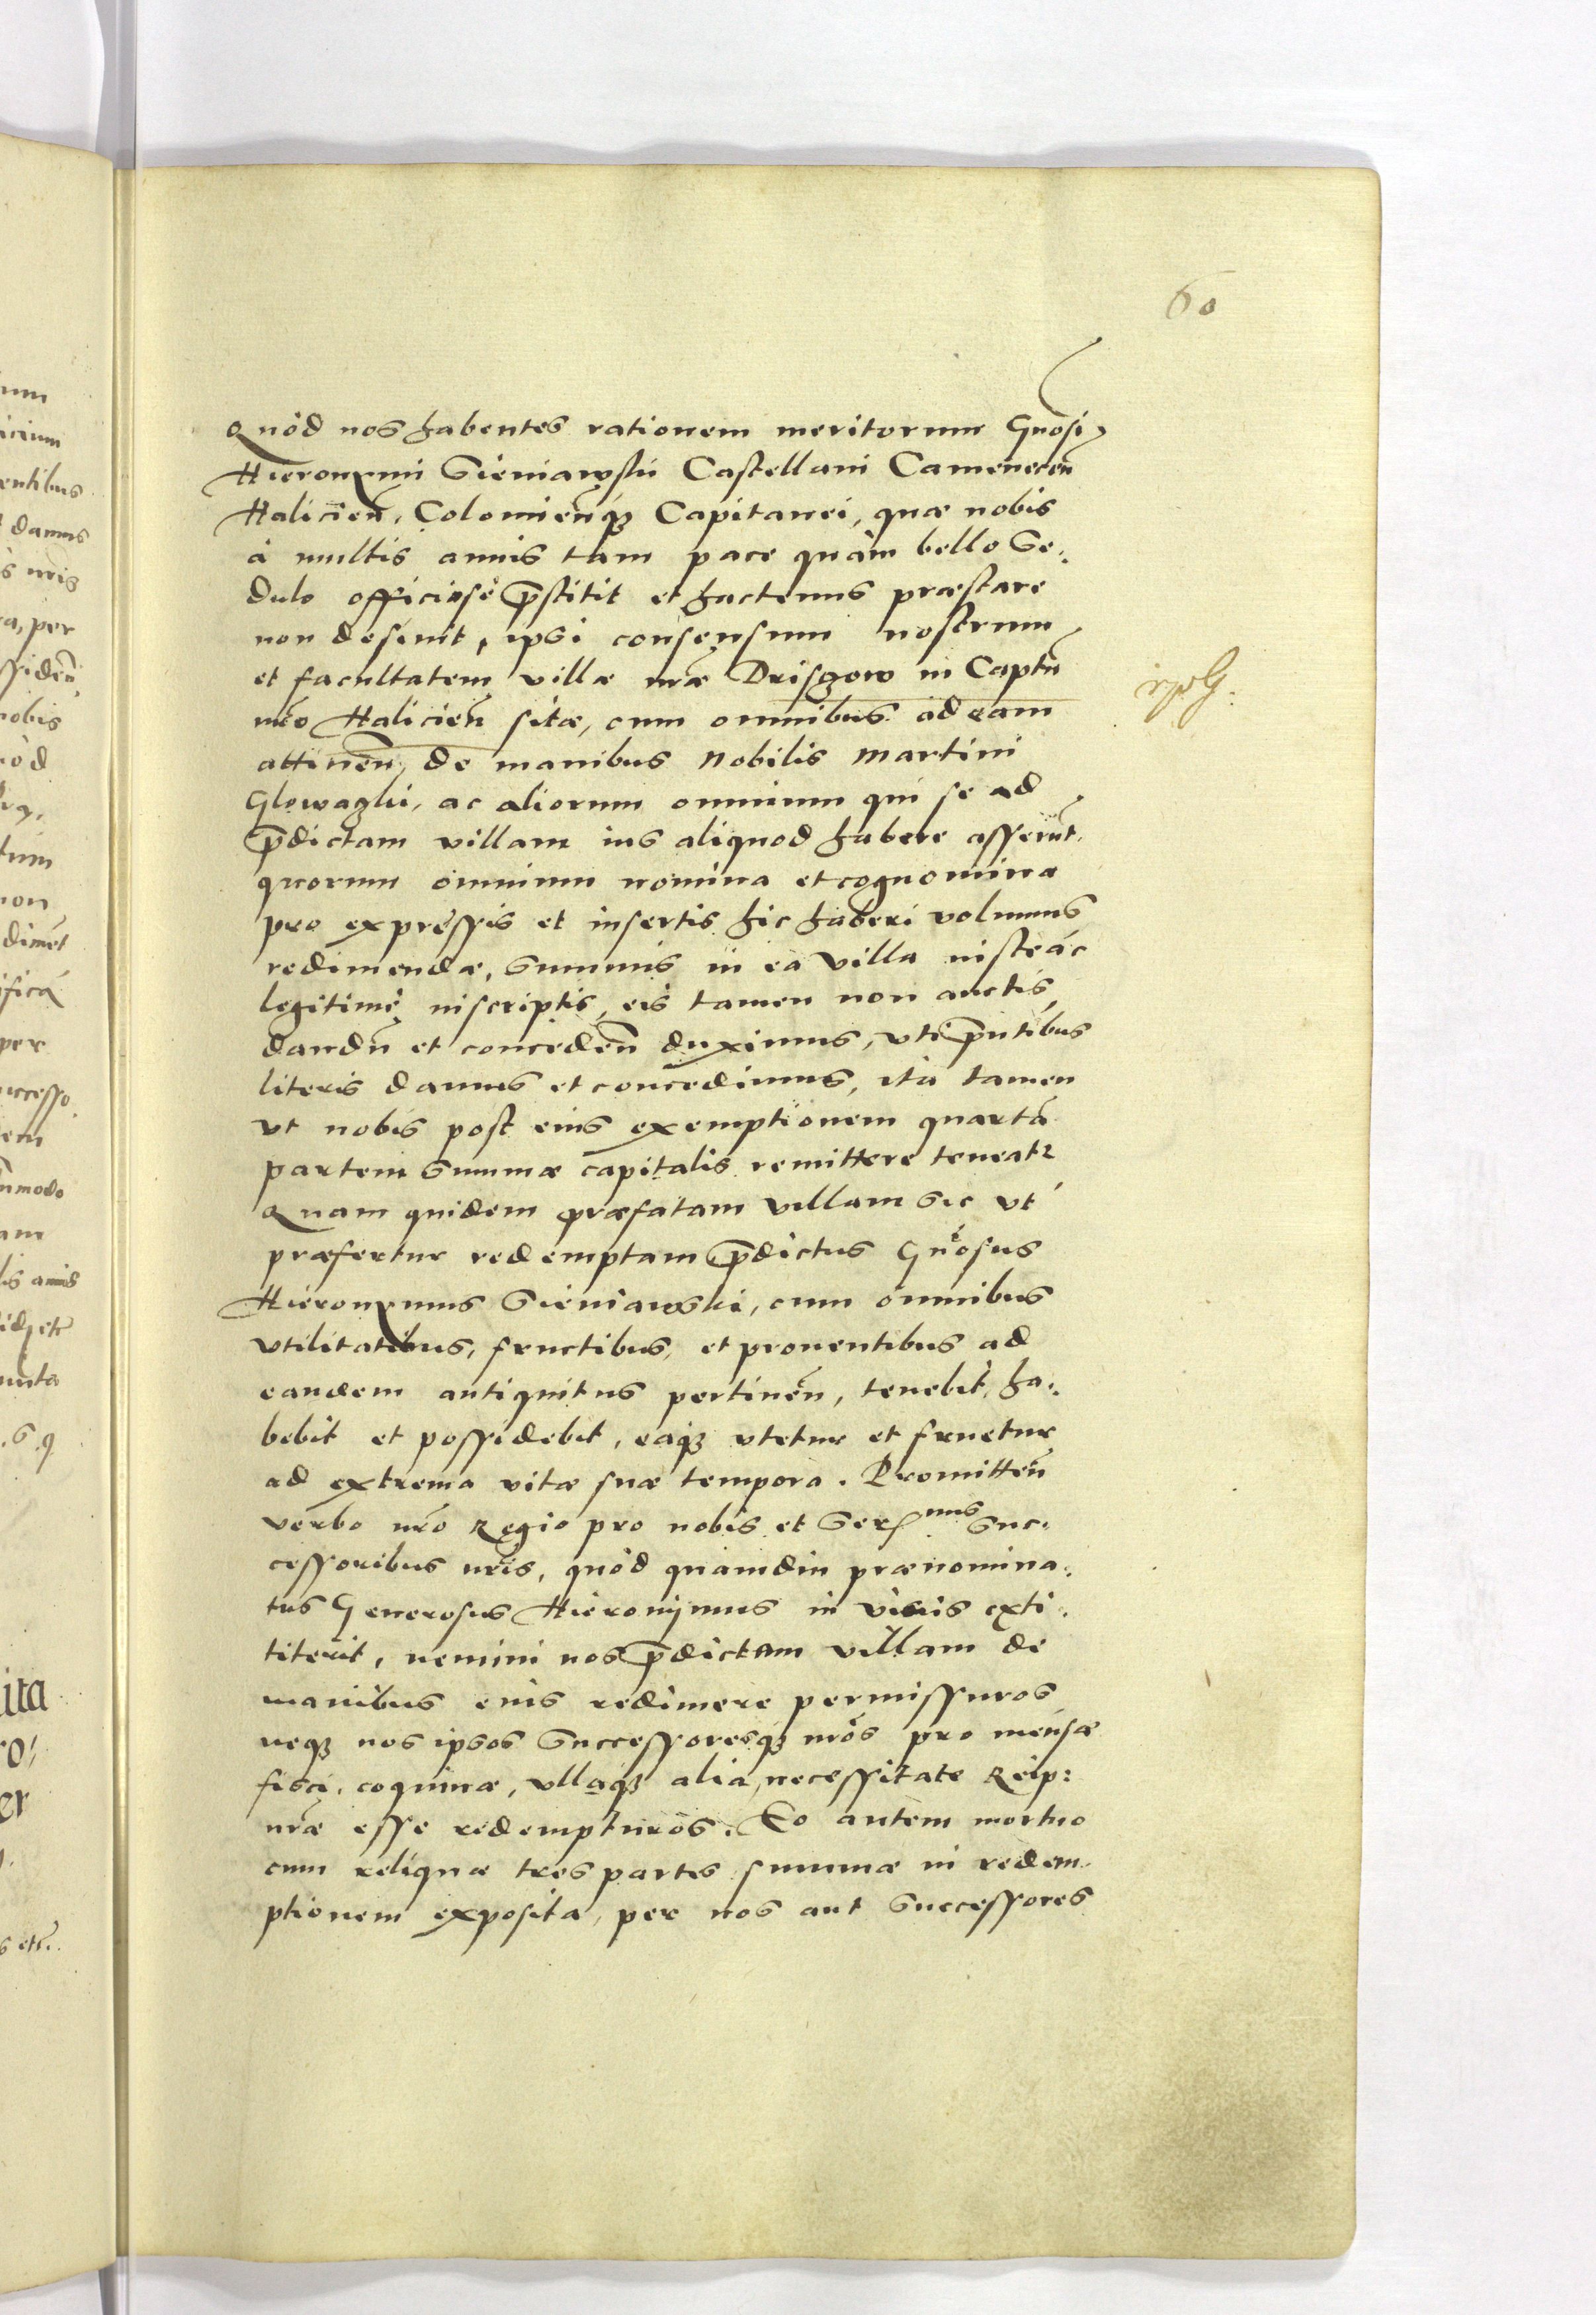 60
Quòd nos habentes rationem meritorum Gnosi
Hieronymi Sieniawskii Castellani Camenecen̄
Halicien̄, Colomien̄q3 Capitanei, quæ nobis
à multis annis tam pace quàm bello se:
dulo officiosè p̄stitit et hactenus præstare
non desinit, ipsi consensum nostrum
et facultatem villæ nr̄æ Drisgow in Captū
nr̄o Halicien̄ sitæ, cum omnibus ad eam
attinen̄, de manibus Nobilis Martini
Glowazki, ac aliorum omnium qui se ad
p̄dictam villam ius aliquod habere asserūt.
quorum omnium nomina et cognomina
pro expressis et insertis hic haberi volumus
redimendæ, summis in ea villa iustè ac
legitimè inscriptis, eis tamen non auctis,
dandn̄ et conceden̄ duximus, vti p̄ntibus
literis damus et concedimus, ita tamen
vt nobis post eius exemptionem quartā
partem summæ capitalis remittere teneatr
Quam quidem præfatam villam sic vt
præfertur redemptam p̄dictus Gn̄osus
Hieronymus Sieniawski, cum omnibus
vtilitatibus, fructibus, et prouentibus ad
eandem antiquitus pertinen̄, tenebit, ha:
bebit et possidebit, eaq3 vtetur et fruetur
ad extrema vitæ suæ tempora. Promitten̄
verbo nr̄o Regio pro nobis et Ser mis Suc:
cessoribus nr̄is, quòd quamdiu prænomina:
tus Generosus Hieronijmus in viuis exti:
titerit, nemini nos p̄dictam villam de
manibus eius redimere permissuros
neq3 nos ipsos Successoresq3 nr̄os pro mensæ
fisci, coquinæ, vllaq3 alia necessitate Reip:
nr̄æ esse redempturos. Eo autem mortuo
cum reliquæ tres partes summæ in redem
ptionem exposita, per nos aut Successores